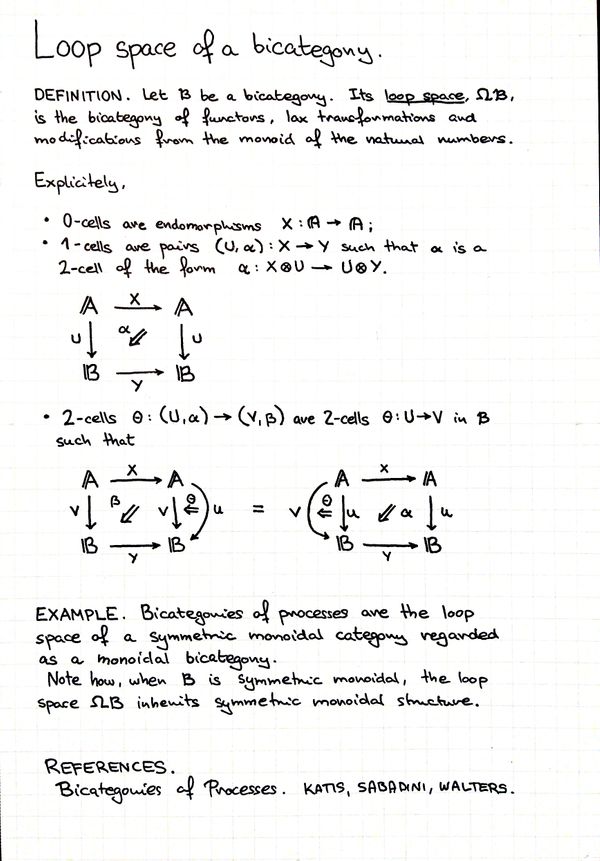 Loop space of a bicategory.
DEFINITION. Let B be a bicategory. Its loop space, ΩB,
is the bicategory of functors, lax transformations and
modifications from the monoid of the natural numbers.
Explicitely,
• 0-cells are endomorphisms X : 𝔸 → 𝔸;
• 1-cells are pairs (U, α) : X → Y such that α is a
2-cell of the form α : X⊗U → U⊗Y.
X
𝔸 → 𝔸
U ↓ α ⇙ ↓ U
𝔹 → 𝔹
Y
• 2-cells θ : (U,α) → (V,β) are 2-cells θ : U→V in B
such that
X X
𝔸 → 𝔸 𝔸 → 𝔸
V ↓ β ⇙ V ↓ θ ⇐ u = V θ ⇐ ↓ u ⇙ α ↓ u
𝔹 → 𝔹 𝔹 → 𝔹
Y Y
EXAMPLE. Bicategories of processes are the loop
space of a symmetric monoidal category regarded
as a monoidal bicategory.
Note how, when B is symmetric monoidal, the loop
space ΩB inherits symmetric monoidal structure.
REFERENCES.
Bicategories of Processes. KATIS, SABADINI, WALTERS.